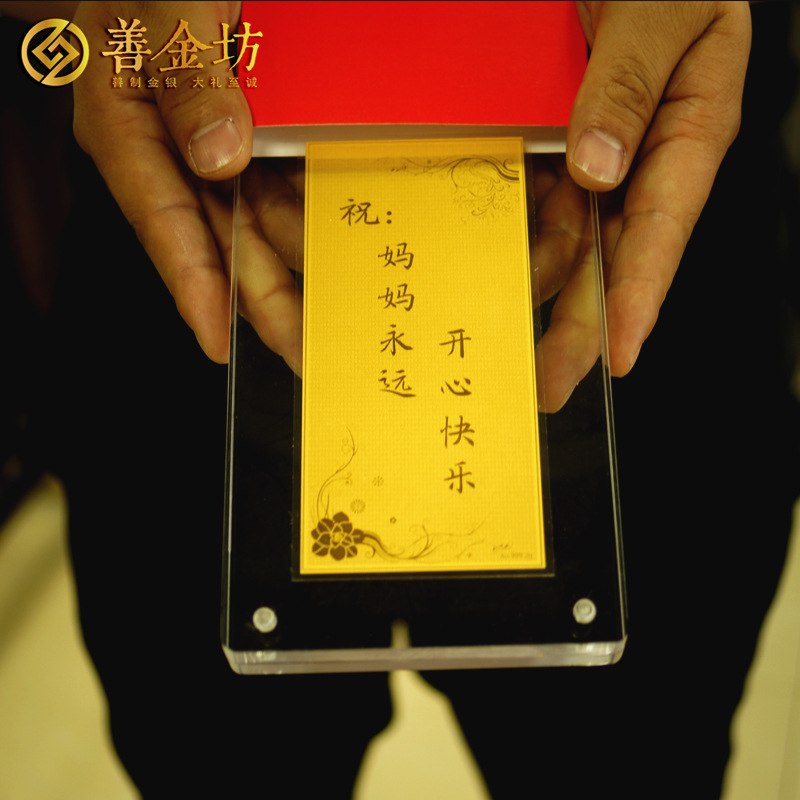 善金坊
善制金银 大礼至诚
祝：
妈妈永远
开心快乐